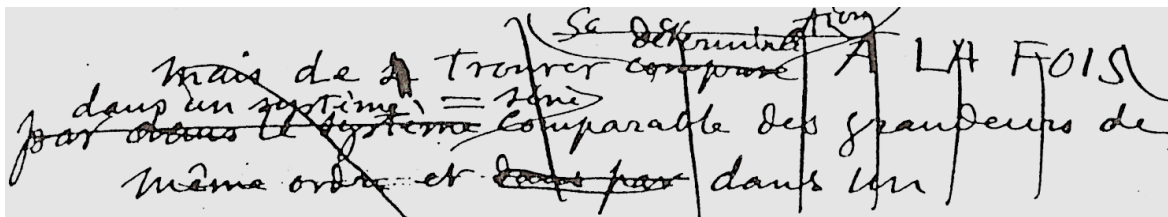 Sa détermination
mais de trouver compare A LA FOIS
dans un système = série
par dans le système comparable des grandeurs de
même ordre et dans par dans un